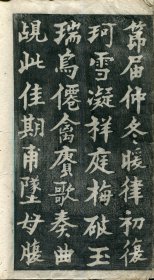 節届仲冬暖律初復
珂雪凝祥庭梅破玉
瑞鳥僊禽賡歌奏曲
覘此佳期甫墜母腹